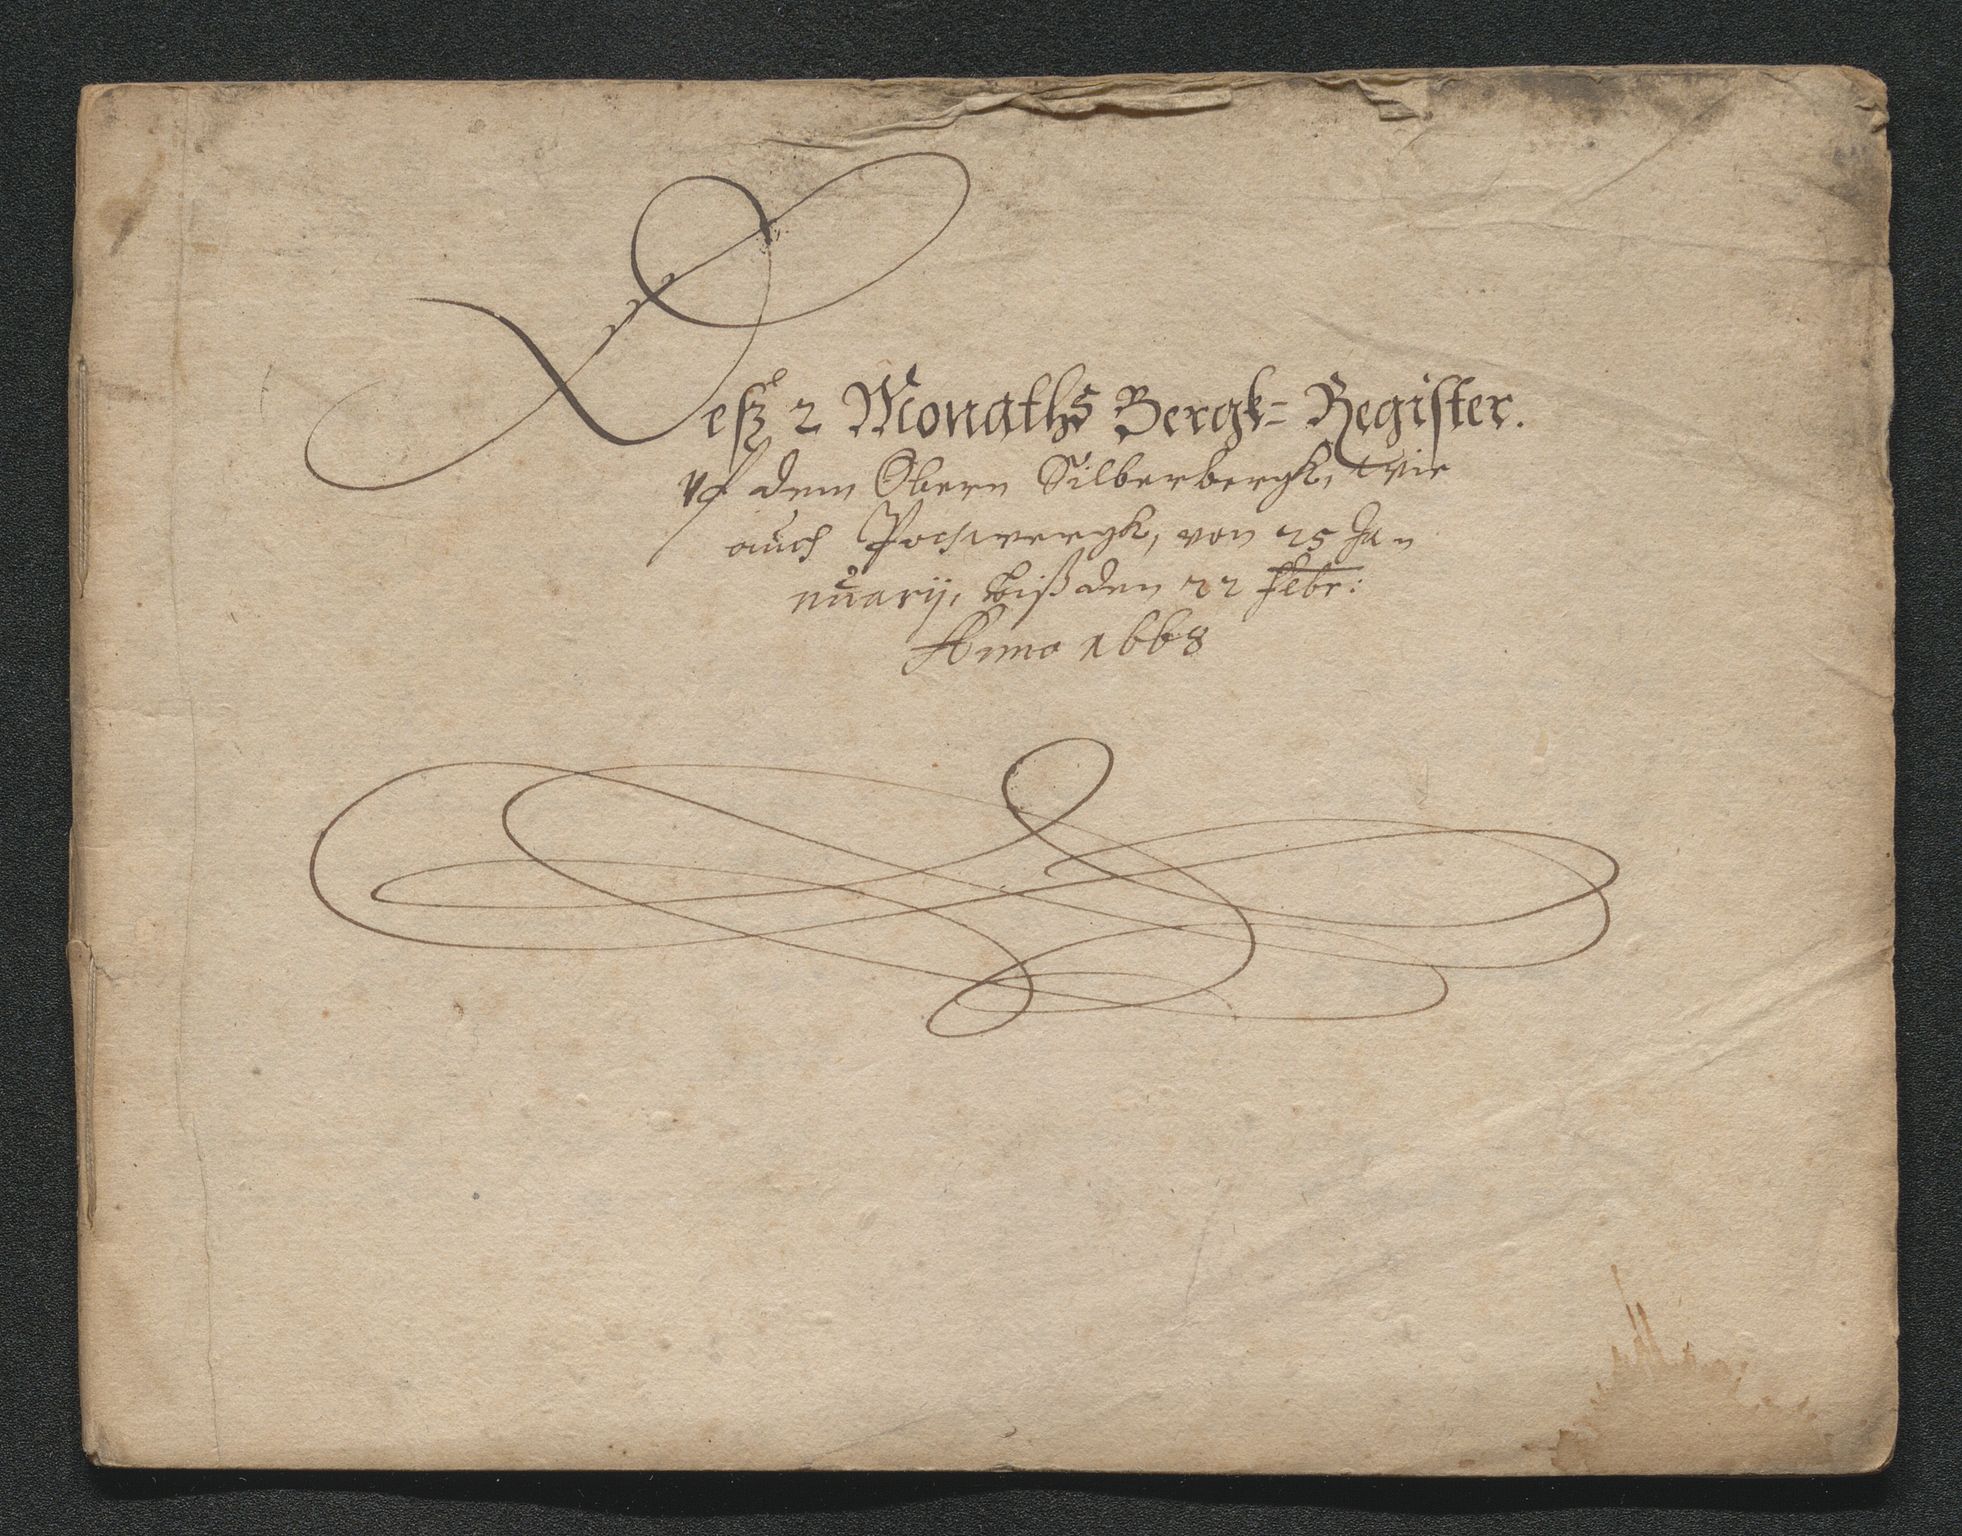 Deß 2 Monaths Bergk= Register.
uf dem Obern Silberbergk, wie
auch Pochwergk, von 25 Ja=
nuarij, biß den 22 Febr:
Anno 1668